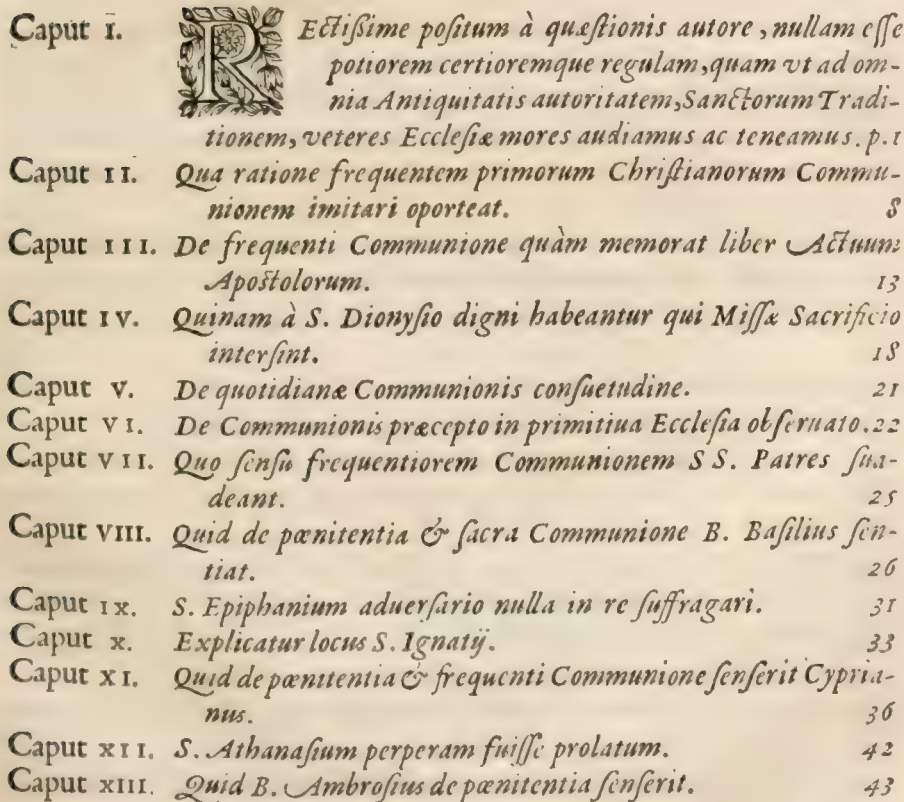 Caput I. REctißime positum à quæstionis autore, nullam esse
potiorem certioremque regulam, quam vt ad om-
nia Antiquitatis autoritatem, Sanctorum Tradi-
tionem, veteres Ecclesiæ mores audiamus ac teneamus. p.1
Caput II. Qua ratione frequentem primorum Christianorum Commu-
nionem imitari oporteat. 8
Caput III. De frequenti Communione quàm memorat liber Actuum
Apostolorum. 13
Caput IV. Quinam à S. Dionysio digni habeantur qui Missæ Sacrificio
intersint. 18
Caput V. De quotidianæ Communionis consuetudine. 21
Caput VI. De Communionis præcepto in primitiua Ecclesia obseruato. 22
Caput VII. Quo sensu frequentiorem Communionem SS. Patres sua-
deant. 25
Caput VIII. Quid de pœnitentia & sacra Communione B. Basilius sen-
tiat. 26
Caput IX. S. Epiphanium aduersario nulla in re suffragari. 31
Caput X. Explicatur locus S. Ignatij. 33
Caput XI. Quid de pœnitentia & frequenti Communione senserit Cypria-
nus. 36
Caput XII. S. Athanasium perperam fuisse prolatum. 42
Caput XIII. Quid B. Ambrosius de pœnitentia senserit. 43